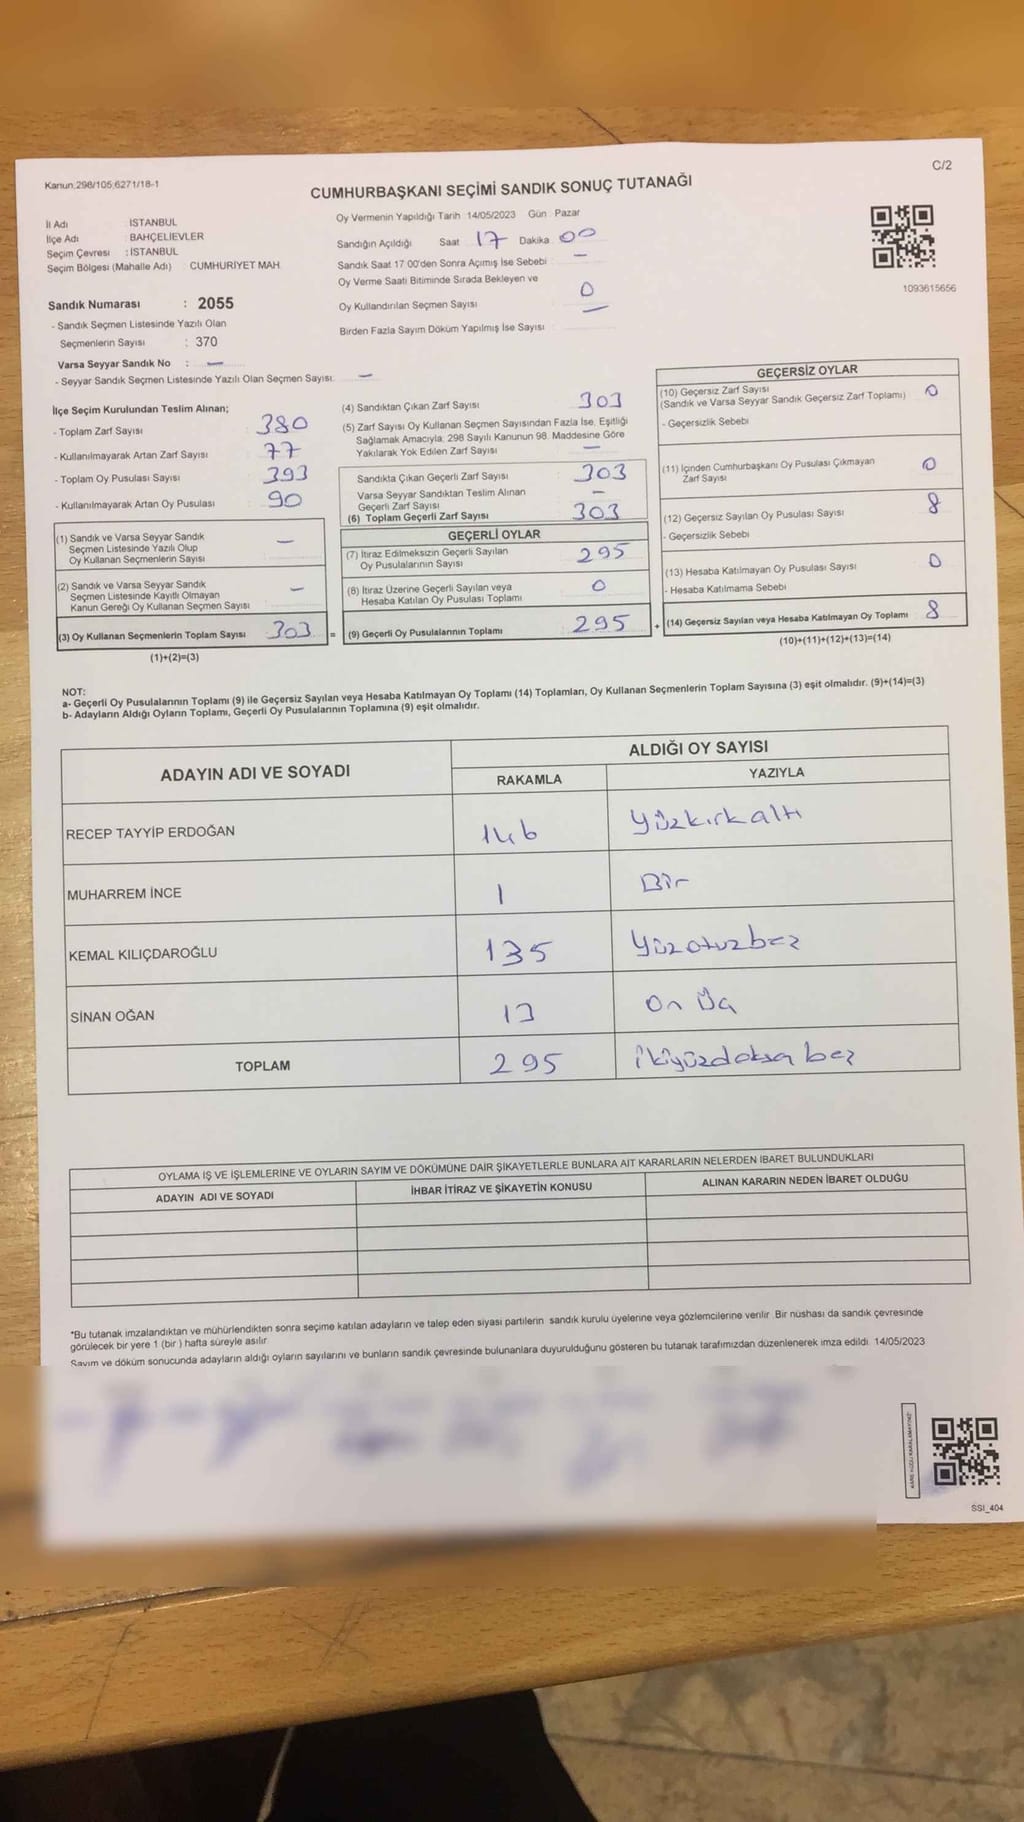 Kanun:298/105;6271/18-1
C/2
CUMHURBAŞKANI SEÇİMİ SANDIK SONUÇ TUTANAĞI
İl Adı : İSTANBUL
İlçe Adı : BAHÇELİEVLER
Seçim Çevresi : İSTANBUL
Seçim Bölgesi (Mahalle Adı) : CUMHURİYET MAH.
Sandık Numarası : 2055
- Sandık Seçmen Listesinde Yazılı Olan
Seçmenlerin Sayısı : 370
Varsa Seyyar Sandık No : —
- Seyyar Sandık Seçmen Listesinde Yazılı Olan Seçmen Sayısı: —
Oy Vermenin Yapıldığı Tarih 14/05/2023 Gün Pazar
Sandığın Açıldığı Saat 17 Dakika 00
Sandık Saat 17 00'den Sonra Açımış İse Sebebi : —
Oy Verme Saati Bitiminde Sırada Bekleyen ve
Oy Kullandırılan Seçmen Sayısı : 0
Birden Fazla Sayım Döküm Yapılmış İse Sayısı : —
1093615656
İlçe Seçim Kurulundan Teslim Alınan;
- Toplam Zarf Sayısı 380
- Kullanılmayarak Artan Zarf Sayısı 77
- Toplam Oy Pusulası Sayısı 393
- Kullanılmayarak Artan Oy Pusulası 90
(1) Sandık ve Varsa Seyyar Sandık
Seçmen Listesinde Yazılı Olup
Oy Kullanan Seçmenlerin Sayısı —
(2) Sandık ve Varsa Seyyar Sandık
Seçmen Listesinde Kayıtlı Olmayan
Kanun Gereği Oy Kullanan Seçmen Sayısı —
(3) Oy Kullanan Seçmenlerin Toplam Sayısı 303 =
(1)+(2)=(3)
(4) Sandıktan Çıkan Zarf Sayısı 303
(5) Zarf Sayısı Oy Kullanan Seçmen Sayısından Fazla İse, Eşitliği
Sağlamak Amacıyla; 298 Sayılı Kanunun 98. Maddesine Göre
Yakılarak Yok Edilen Zarf Sayısı —
Sandıkta Çıkan Geçerli Zarf Sayısı 303
Varsa Seyyar Sandıktan Teslim Alınan
Geçerli Zarf Sayısı —
(6) Toplam Geçerli Zarf Sayısı 303
GEÇERLİ OYLAR
(7) İtiraz Edilmeksizin Geçerli Sayılan
Oy Pusulalarının Sayısı 295
(8) İtiraz Üzerine Geçerli Sayılan veya
Hesaba Katılan Oy Pusulası Toplamı 0
(9) Geçerli Oy Pusulalarının Toplamı 295 +
GEÇERSİZ OYLAR
(10) Geçersiz Zarf Sayısı
(Sandık ve Varsa Seyyar Sandık Geçersiz Zarf Toplamı) 0
- Geçersizlik Sebebi
(11) İçinden Cumhurbaşkanı Oy Pusulası Çıkmayan
Zarf Sayısı 0
(12) Geçersiz Sayılan Oy Pusulası Sayısı 8
- Geçersizlik Sebebi
(13) Hesaba Katılmayan Oy Pusulası Sayısı 0
- Hesaba Katılmama Sebebi
(14) Geçersiz Sayılan veya Hesaba Katılmayan Oy Toplamı 8
(10)+(11)+(12)+(13)=(14)
NOT:
a- Geçerli Oy Pusulalarının Toplamı (9) ile Geçersiz Sayılan veya Hesaba Katılmayan Oy Toplamı (14) Toplamları, Oy Kullanan Seçmenlerin Toplam Sayısına (3) eşit olmalıdır. (9)+(14)=(3)
b- Adayların Aldığı Oyların Toplamı, Geçerli Oy Pusulalarının Toplamına (9) eşit olmalıdır.
ADAYIN ADI VE SOYADI
ALDIĞI OY SAYISI
RAKAMLA YAZIYLA
RECEP TAYYİP ERDOĞAN 146 Yüzkırkaltı
MUHARREM İNCE 1 Bir
KEMAL KILIÇDAROĞLU 135 Yüzotuzbeş
SİNAN OĞAN 13 On Üç
TOPLAM 295 ikiyüzdoksa beş
OYLAMA İŞ VE İŞLEMLERİNE VE OYLARIN SAYIM VE DÖKÜMÜNE DAİR ŞİKAYETLERLE BUNLARA AİT KARARLARIN NELERDEN İBARET BULUNDUKLARI
ADAYIN ADI VE SOYADI İHBAR İTİRAZ VE ŞİKAYETİN KONUSU ALINAN KARARIN NEDEN İBARET OLDUĞU
*Bu tutanak imzalandıktan ve mühürlendikten sonra seçime katılan adayların ve talep eden siyasi partilerin sandık kurulu üyelerine veya gözlemcilerine verilir. Bir nüshası da sandık çevresinde
görülecek bir yere 1 (bir) hafta süreyle asılır.
Sayım ve döküm sonucunda adayların aldığı oyların sayılarını ve bunların sandık çevresinde bulunanlara duyurulduğunu gösteren bu tutanak tarafımızdan düzenlenerek imza edildi. 14/05/2023
KARE KODU KARALAMAYINIZ!
SSI_404